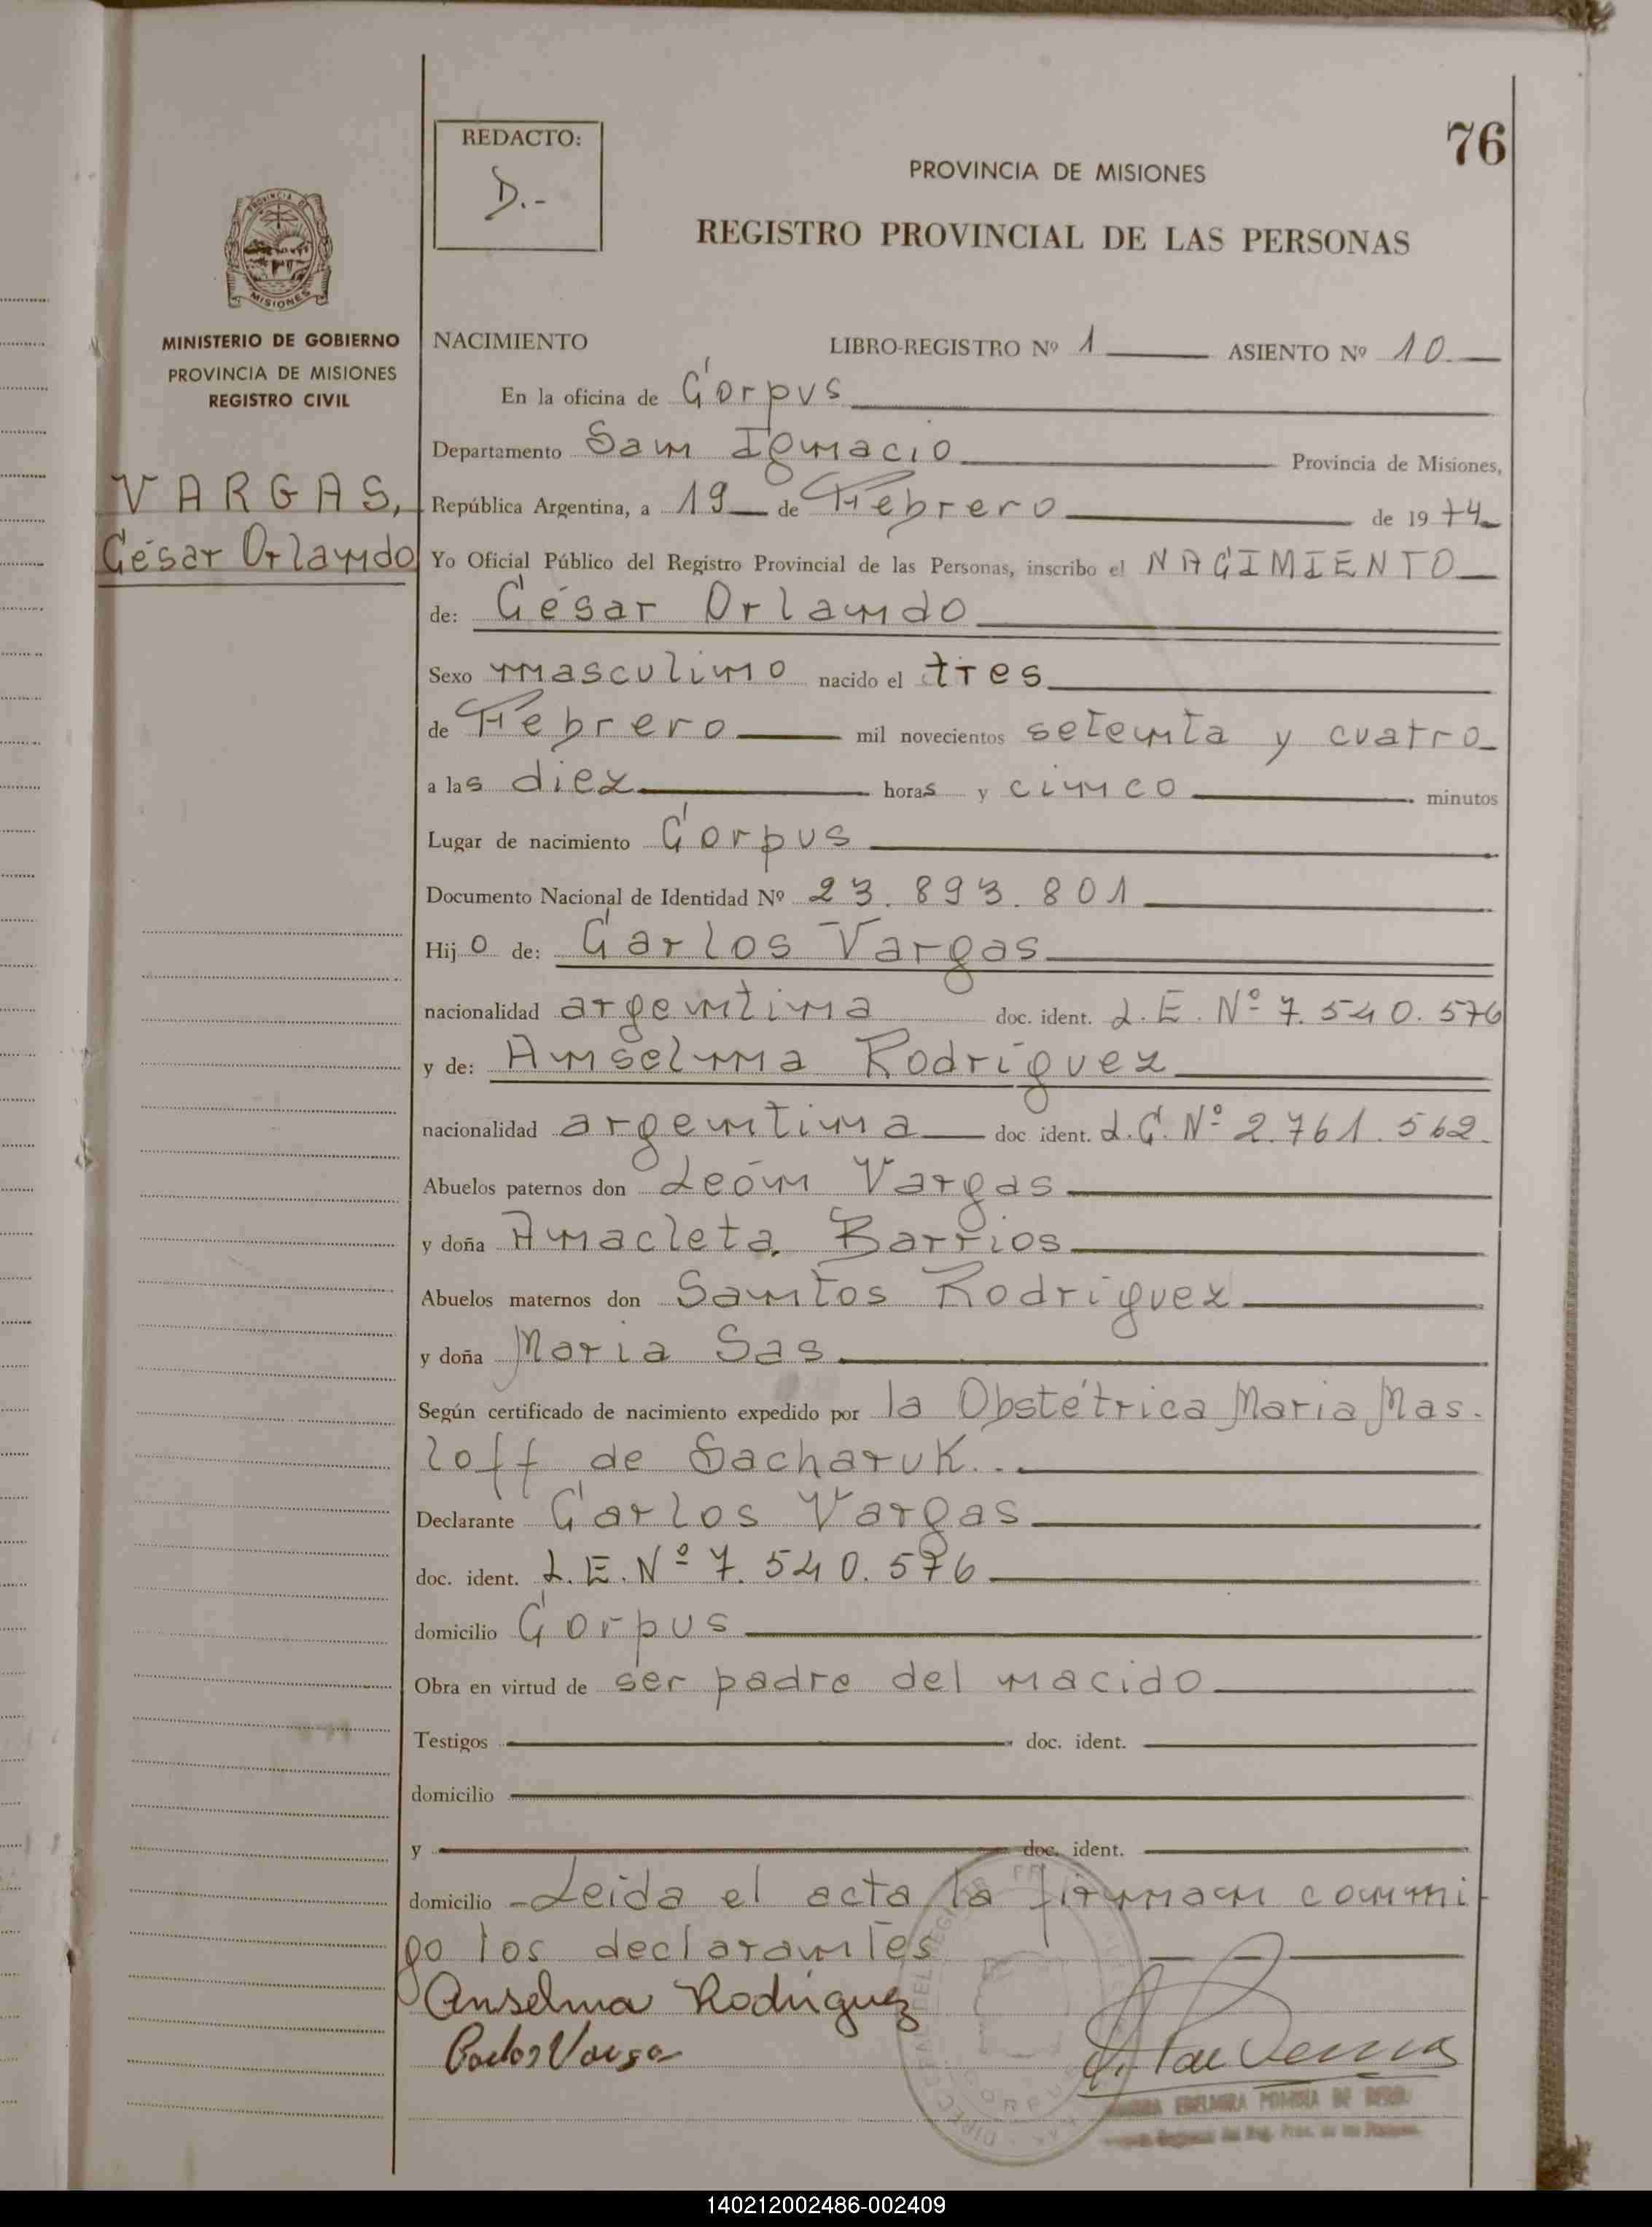 76
REDACTO:
D.-
PROVINCIA DE MISIONES
REGISTRO PROVINCIAL DE LAS PERSONAS
PROVINCIA DE
MISIONES
MINISTERIO DE GOBIERNO
PROVINCIA DE MISIONES
REGISTRO CIVIL
VARGAS,
César Orlando
NACIMIENTO LIBRO-REGISTRO Nº 1 ASIENTO Nº 10.
En la oficina de Corpus
Departamento San Ignacio Provincia de Misiones,
República Argentina, a 19 de Febrero de 1974
Yo Oficial Público del Registro Provincial de las Personas, inscribo el NACIMIENTO
de: César Orlando
Sexo masculino nacido el tres
de Febrero mil novecientos setenta y cuatro
a las diez horas y cinco minutos
Lugar de nacimiento Corpus
Documento Nacional de Identidad Nº 23.893.801
Hijo de: Carlos Vargas
nacionalidad argentina doc. ident. L.E. Nº 7.540.576
y de: Anselma Rodríguez
nacionalidad argentina doc ident. L.C. Nº 2.761.562.
Abuelos paternos don León Vargas
y doña Anacleta Barrios
Abuelos maternos don Santos Rodriguez
y doña Maria Sas
Según certificado de nacimiento expedido por la Obstétrica Maria Mas-
loff de Sacharuk..
Declarante Carlos Vargas
doc. ident. L.E. Nº 7.540.576
domicilio Corpus
Obra en virtud de ser padre del nacido
Testigos doc. ident.
domicilio
y doc. ident.
domicilio -Leida el acta la firman conmi-
go los declarantes
Anselma Rodriguez
Carlos Varga
140212002486-002409